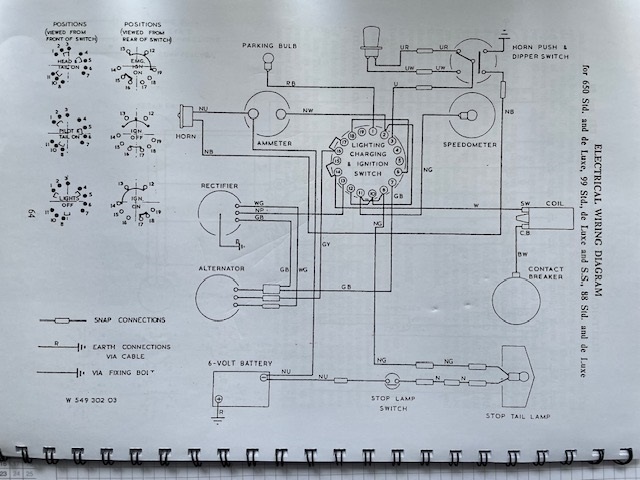 ELECTRICAL WIRING DIAGRAM
for 650 Std. and de Luxe, 99 Std. de Luxe and S.S., 88 Std. and de Luxe
POSITIONS
(VIEWED FROM
FRONT OF SWITCH)
POSITIONS
(VIEWED FROM
REAR OF SWITCH)
HEAD &
TAIL ON
EMG.
IGN
ON
PILOT &
TAIL ON
IGN
OFF
LIGHTS
OFF
IGN.
ON
64
PARKING BULB
RB
UR
UR
UW
UW
U
HORN PUSH &
DIPPER SWITCH
NB
NU
NW
HORN
AMMETER
NB
LIGHTING
CHARGING
& IGNITION
SWITCH
SPEEDOMETER
NG
RECTIFIER
WG
NP
GB
GB
NG
W
SW
COIL
C.B
GY
BW
ALTERNATOR
GB
WG
GB
CONTACT
BREAKER
SNAP CONNECTIONS
R
EARTH CONNECTIONS
VIA CABLE
VIA FIXING BOLT
W 549 302 03
6-VOLT BATTERY
NU
NU
R
NG
NG
N
N
STOP LAMP
SWITCH
STOP TAIL LAMP